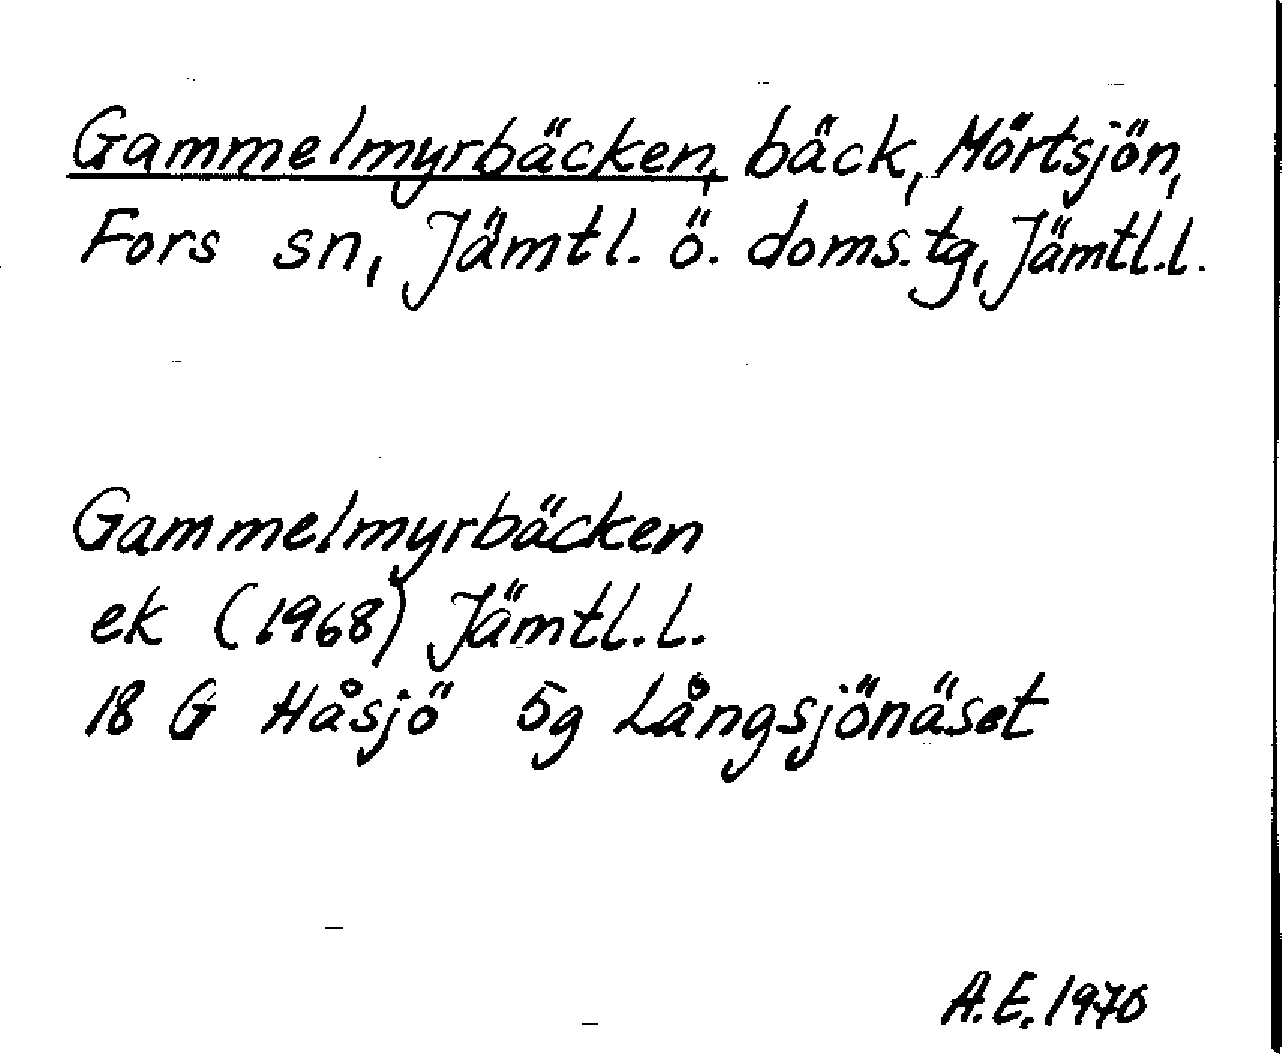 Gammelmyrbäcken, bäck, Mörtsjön,
Fors sn, Jämtl. ö. doms.tg, Jämtl.l.
Gammelmyrbäcken
ek (1968) Jämtl.l.
18 G Håsjö 5g Långsjönäset
A.E. 1970